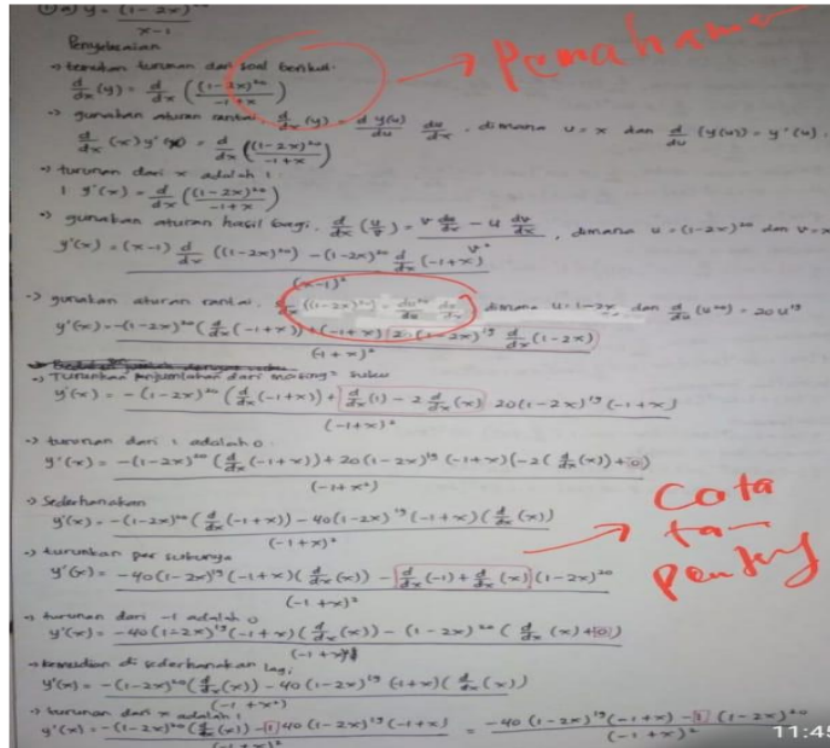 ① a) y = (1-2x)²⁰ / x-1
Penyelesaian
→ temukan turunan dari soal berikut.
d/dx (y) = d/dx ((1-2x)²⁰ / -1+x)
→ gunakan aturan rantai. d/dx (y) = d y(u)/du du/dx, dimana u = x dan d/du (y(u)) = y'(u).
d/dx (x) y'(x) = d/dx ((1-2x)²⁰ / -1+x)
→ turunan dari x adalah 1
1 y'(x) = d/dx ((1-2x)²⁰ / -1+x)
→ gunakan aturan hasil bagi. d/dx (u/v) = v du/dx - u dv/dx / v², dimana u = (1-2x)²⁰ dan v =
y'(x) = (x-1) d/dx ((1-2x)²⁰) - (1-2x)²⁰ d/dx (-1+x) / (x-1)²
→ gunakan aturan rantai. d/dx ((1-2x)²⁰) = du²⁰/du du/dx, dimana u = 1-2x dan d/du (u²⁰) = 20u¹⁹
y'(x) = -(1-2x)²⁰ (d/dx (-1+x)) + (-1+x) 20 (1-2x)¹⁹ d/dx (1-2x) / (-1+x)²
→ Turunkan penjumlahan dari masing² suku
y'(x) = -(1-2x)²⁰ (d/dx (-1+x)) + d/dx (1) - 2 d/dx (x) 20(1-2x)¹⁹ (-1+x) / (-1+x)²
→ turunan dari 1 adalah 0.
y'(x) = -(1-2x)²⁰ (d/dx (-1+x)) + 20(1-2x)¹⁹ (-1+x) (-2 (d/dx (x)) + 0) / (-1+x²)
→ Sederhanakan
y'(x) = -(1-2x)²⁰ (d/dx (-1+x)) - 40(1-2x)¹⁹ (-1+x) (d/dx (x)) / (-1+x)²
→ turunkan per sukunya
y'(x) = -40(1-2x)¹⁹ (-1+x) (d/dx (x)) - d/dx (-1) + d/dx (x) (1-2x)²⁰ / (-1+x)²
→ turunan dari -1 adalah 0
y'(x) = -40(1-2x)¹⁹ (-1+x) (d/dx (x)) - (1-2x)²⁰ (d/dx (x) + 0) / (-1+x)²
→ kemudian di sederhanakan lagi;
y'(x) = -(1-2x)²⁰ (d/dx (x)) - 40(1-2x)¹⁹ (-1+x) (d/dx (x)) / (-1+x²)
→ turunan dari x adalah 1
y'(x) = -(1-2x)²⁰ (d/dx (x)) - 1 40(1-2x)¹⁹ (-1+x) / (-1+x)² = -40 (1-2x)¹⁹ (-1+x) - 1 (1-2x)²⁰ / (-1+x)²
→ Pemahaman
→ Cata
tan
penting
11:45